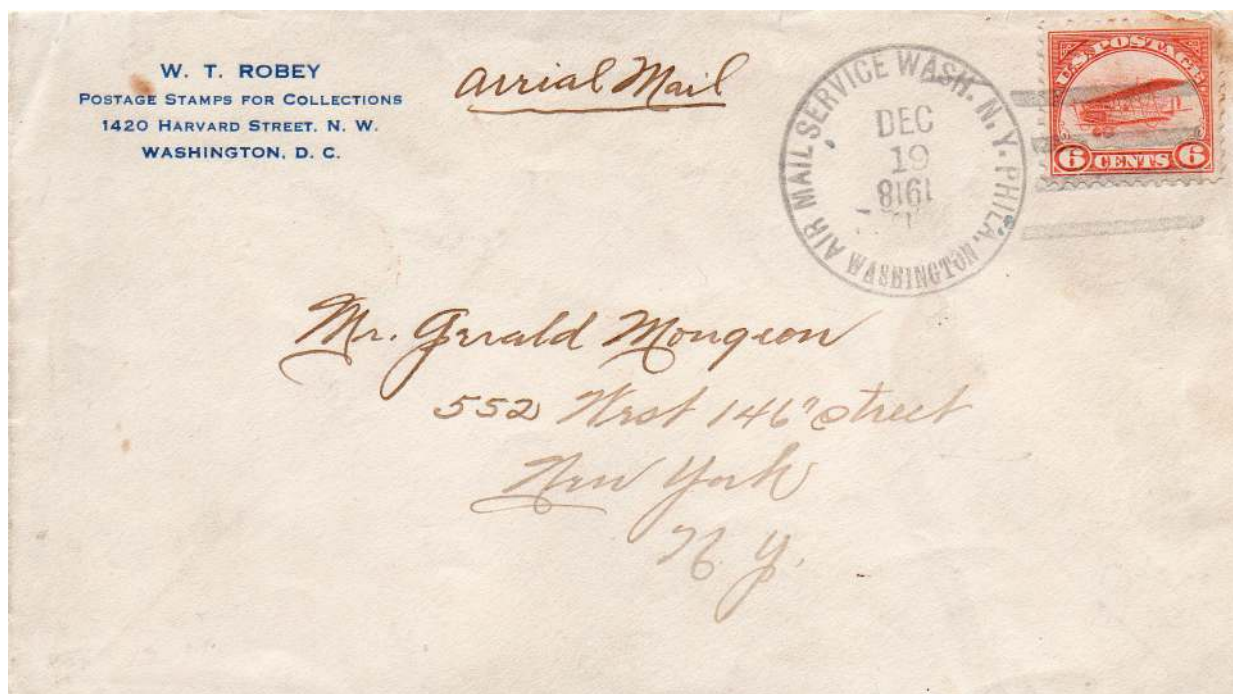 W. T. ROBEY
POSTAGE STAMPS FOR COLLECTIONS
1420 HARVARD STREET. N. W.
WASHINGTON, D. C.
Aerial Mail
AIR MAIL SERVICE WASH. N. Y. PHILA.
DEC
19
1918
WASHINGTON
U.S. POSTAGE
6 CENTS 6
Mr. Gerald Mongeon
552 West 146" Street
New York
N. Y.